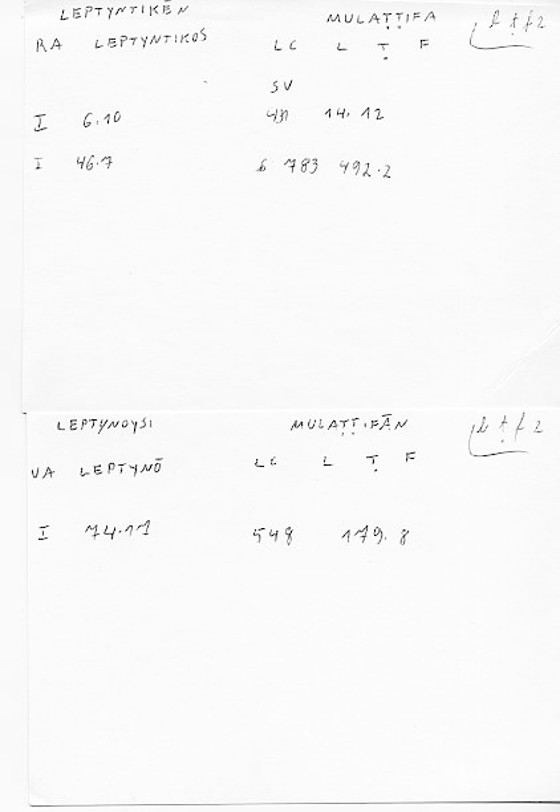 LEPTYNTIKĒN MULAṬṬIFA l ṭ f 2
RA LEPTYNTIKOS LC L Ṭ F
SV
I 6.10 431 14.12
I 46.7 6 783 492.2
LEPTYNOYSI MULAṬṬIFĀN l ṭ f 2
VA LEPTYNŌ LC L Ṭ F
I 74.11 548 179.8